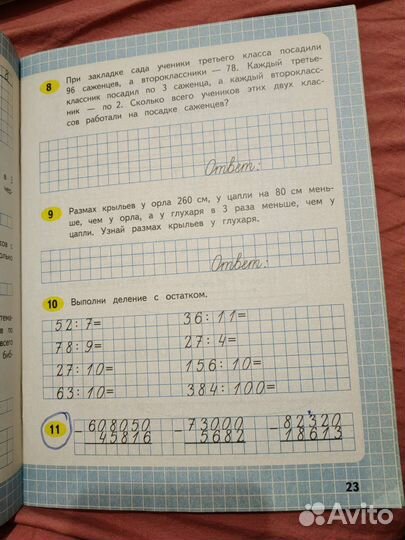 8 При закладке сада ученики третьего класса посадили
96 саженцев, а второклассники — 78. Каждый третье-
классник посадил по 3 саженца, а каждый второкласс-
ник — по 2. Сколько всего учеников этих двух клас-
сов работали на посадке саженцев?
Ответ:
9 Размах крыльев у орла 260 см, у цапли на 80 см мень-
ше, чем у орла, а у глухаря в 3 раза меньше, чем у
цапли. Узнай размах крыльев у глухаря.
Ответ:
10 Выполни деление с остатком.
52:7= 36:11=
78:9= 27:4=
27:10= 156:10=
63:10= 384:100=
11 -608050 -73000 -82320
45816 5682 18613
23
Avito